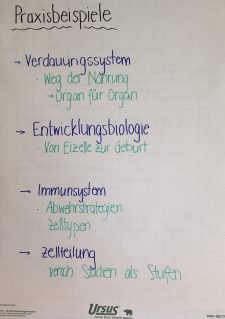 Praxisbeispiele
→ Verdauungssystem
· Weg der Nahrung
→ Organ für Organ
→ Entwicklungsbiologie
· Von Eizelle zur Geburt
→ Immunsystem
· Abwehrstrategien
· Zelltypen
→ Zellteilung
· versch. Stadien als Stufen
URSUS